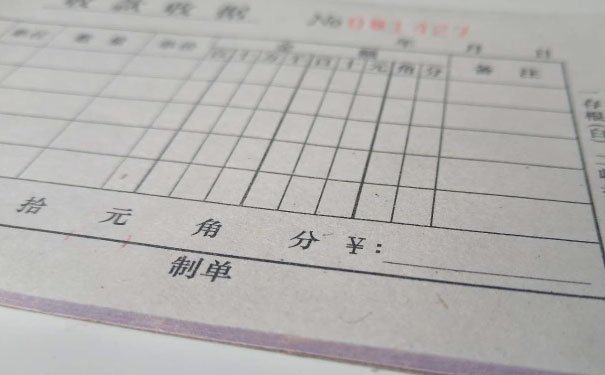 收款收据 No 081427
年 月 日
单位 数量 单价 金额 备注
百十万千百十元角分
拾 元 角 分 ¥:
制单
一存根(白)二